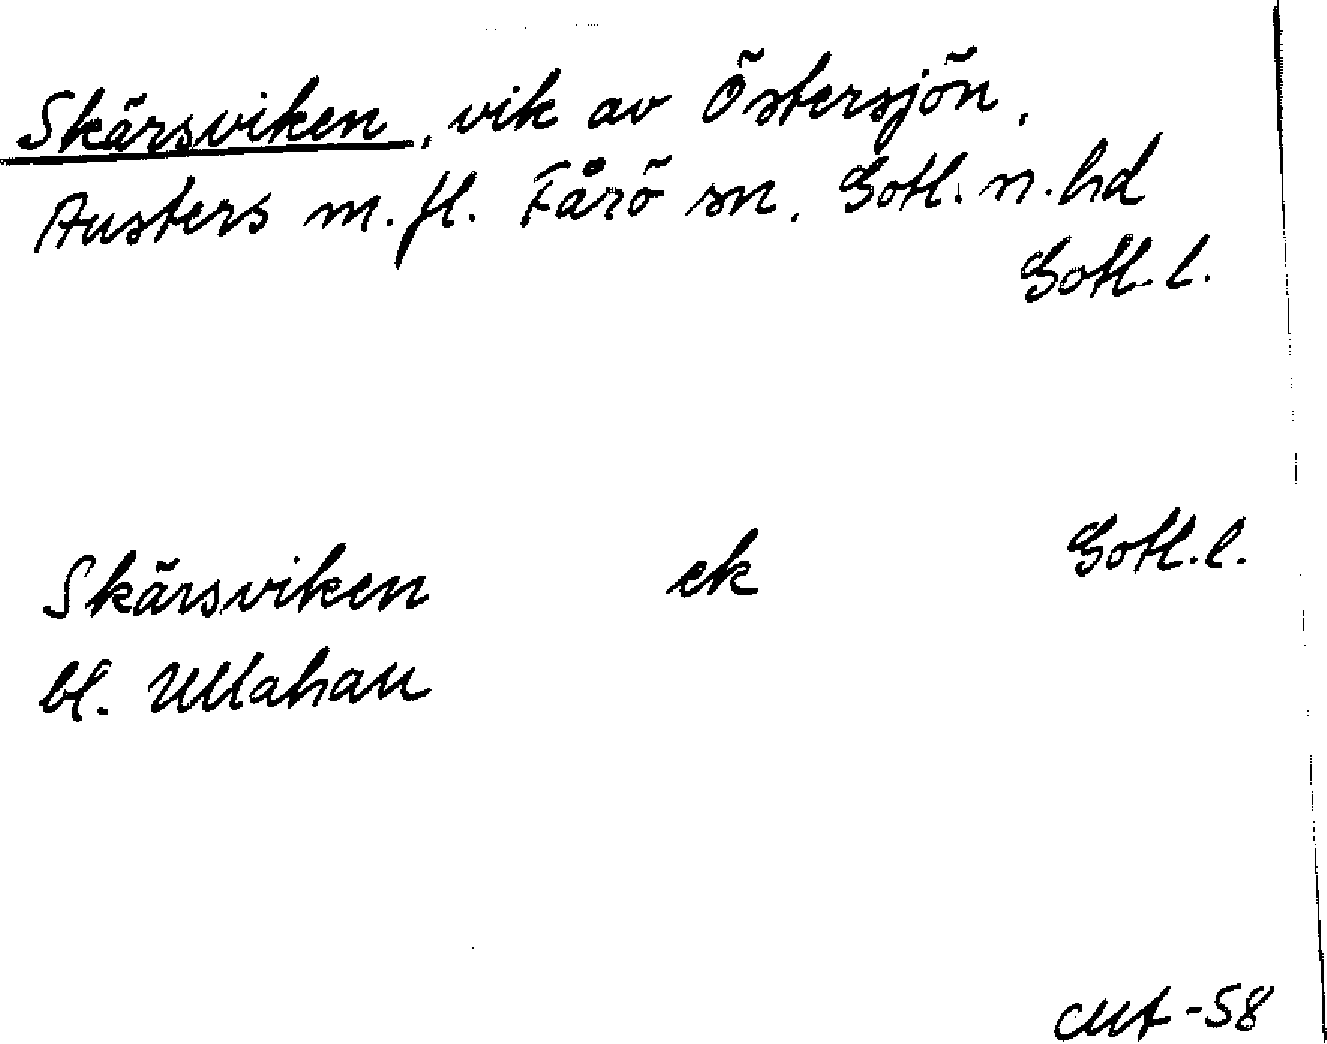 Skärsviken, vik av Östersjön,
Austers m.fl. Fårö sn, Gotl. n. hd
Gotl. l.
Skärsviken ek Gotl. l.
bl. Ullahau
-58